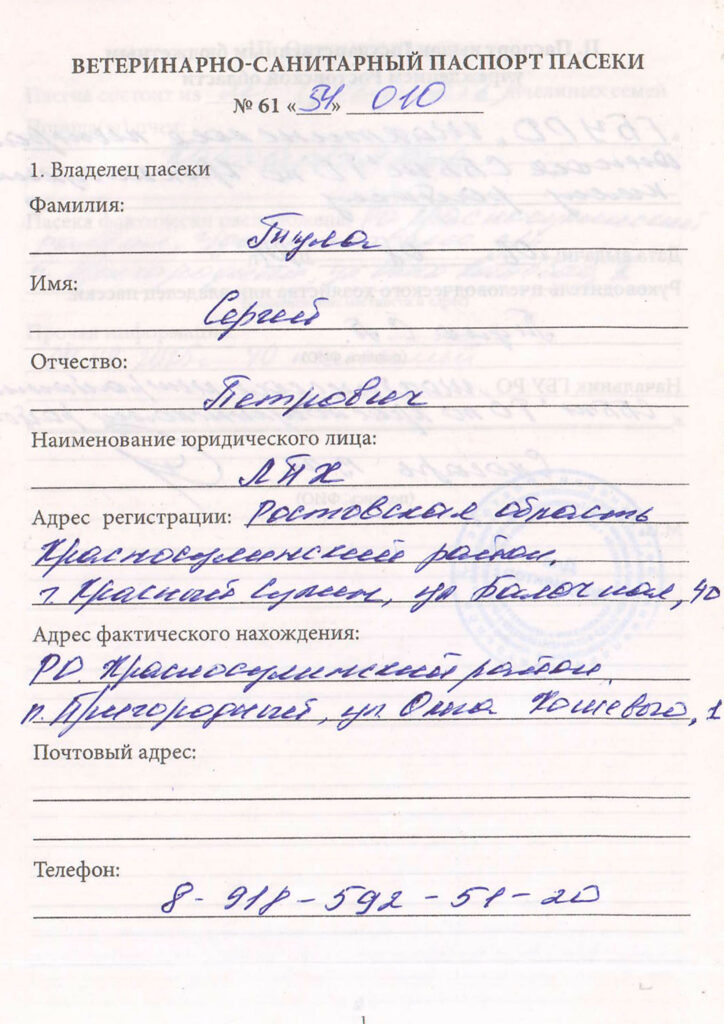 ВЕТЕРИНАРНО-САНИТАРНЫЙ ПАСПОРТ ПАСЕКИ
№ 61 «54» 010
1. Владелец пасеки
Фамилия:
Гнула
Имя:
Сергей
Отчество:
Петрович
Наименование юридического лица:
ЛПХ
Адрес регистрации: Ростовская область
Красносулинский район,
г. Красный Сулин, ул Балочная, 40
Адрес фактического нахождения:
РО. Красносулинский район
п. Пригородный, ул Олега Кошевого, 1
Почтовый адрес:
Телефон:
8-918-592-51-20
1